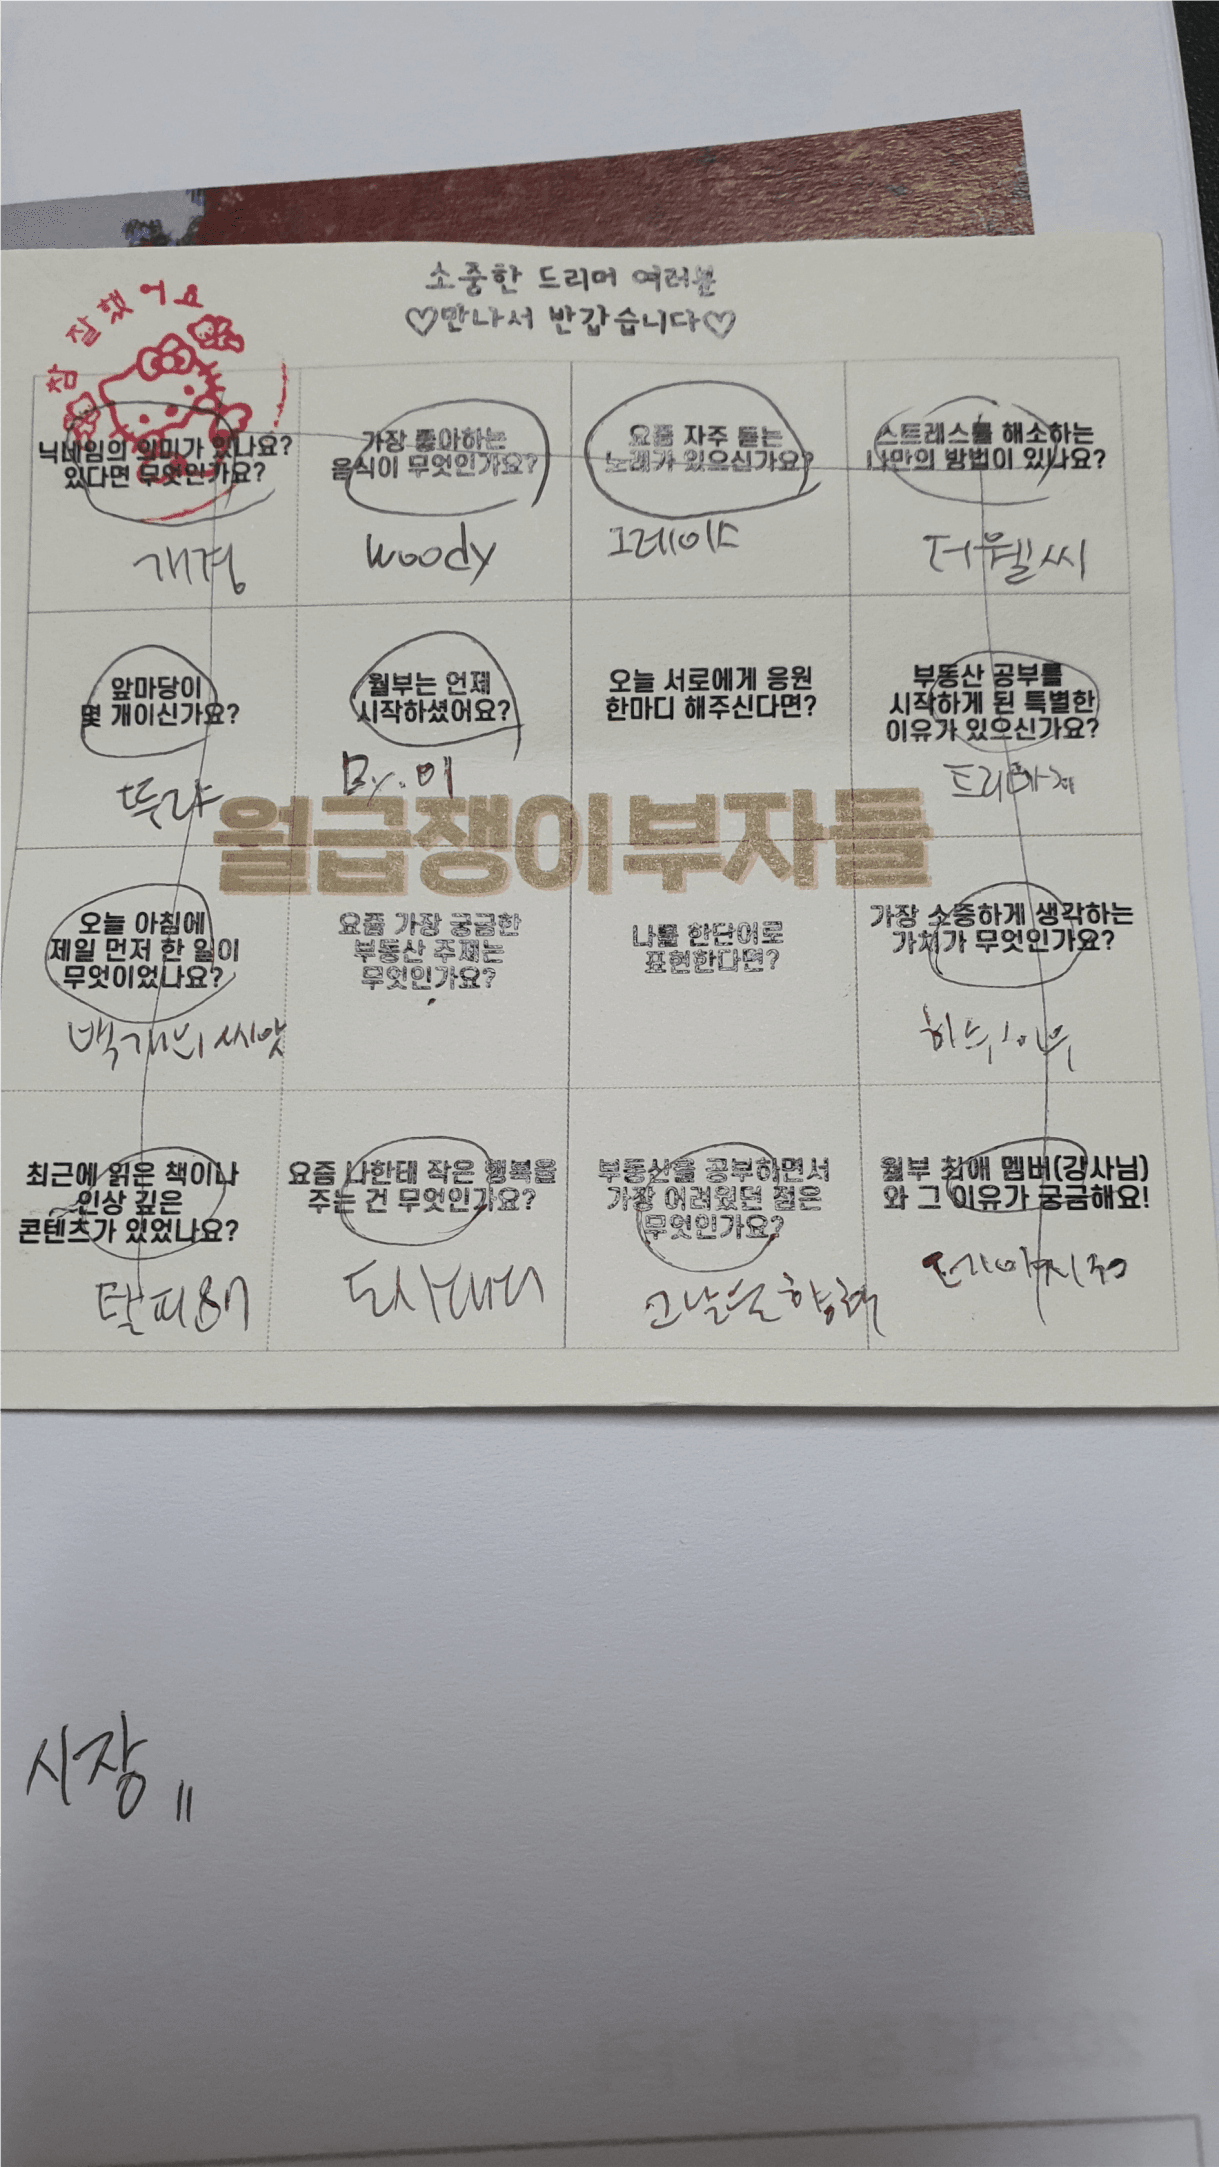 소중한 드리머 여러분
♡만나서 반갑습니다♡
참 잘했어요
닉네임의 의미가 있나요?
있다면 무엇인가요?
개경
가장 좋아하는
음식이 무엇인가요?
Woody
요즘 자주 듣는
노래가 있으신가요?
그레이스
스트레스를 해소하는
나만의 방법이 있나요?
더웰씨
앞마당이
몇 개이신가요?
뚜랴
월부는 언제
시작하셨어요?
오늘 서로에게 응원
한마디 해주신다면?
부동산 공부를
시작하게 된 특별한
이유가 있으신가요?
월급쟁이부자들
오늘 아침에
제일 먼저 한 일이
무엇이었나요?
백개의씨앗
요즘 가장 궁금한
부동산 주제는
무엇인가요?
나를 한단어로
표현한다면?
가장 소중하게 생각하는
가치가 무엇인가요?
최근에 읽은 책이나
인상 깊은
콘텐츠가 있었나요?
탈피87
요즘 나한테 작은 행복을
주는 건 무엇인가요?
도사대디
부동산을 공부하면서
가장 어려웠던 점은
무엇인가요?
월부 최애 멤버(강사님)
와 그 이유가 궁금해요!
시장